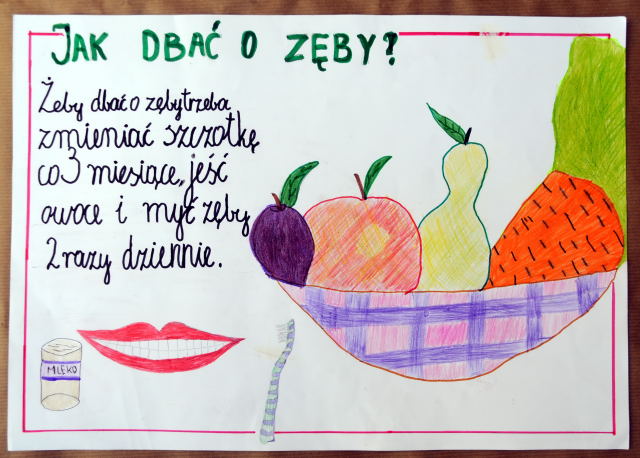 JAK DBAĆ O ZĘBY?
Żeby dbać o zęby trzeba
zmieniać szczotkę
co 3 miesiące, jeść
owoce i myć zęby
2 razy dziennie.
MLEKO